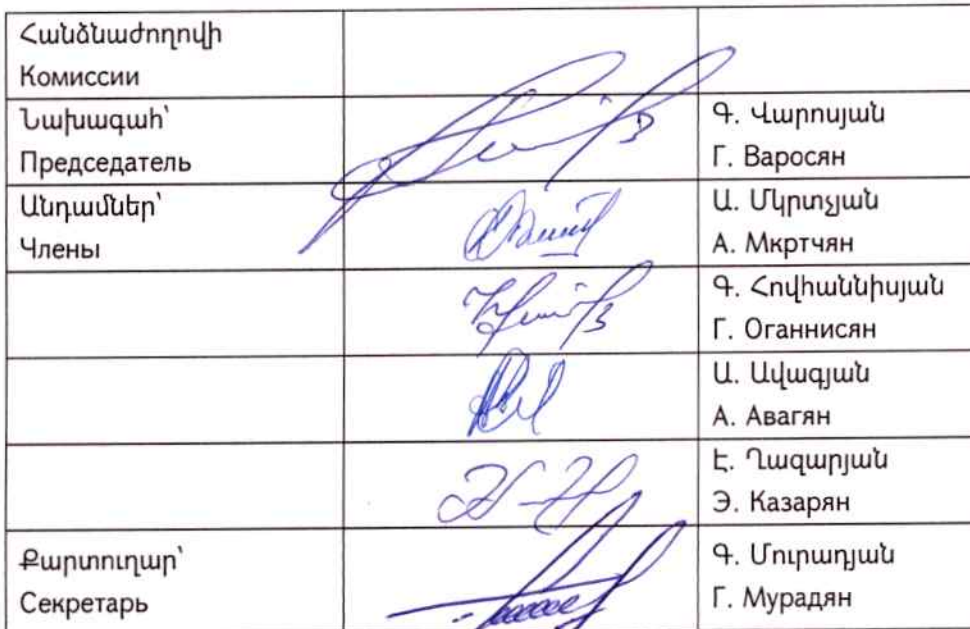 Հանձնաժողովի
Комиссии
Նախագահ՝
Председатель
Գ. Վարոսյան
Г. Варосян
Անդամներ՝
Члены
Ա. Մկրտչյան
А. Мкртчян
Գ. Հովհաննիսյան
Г. Оганнисян
Ա. Ավագյան
А. Авагян
Է. Ղազարյան
Э. Казарян
Քարտուղար՝
Секретарь
Գ. Մուրադյան
Г. Мурадян